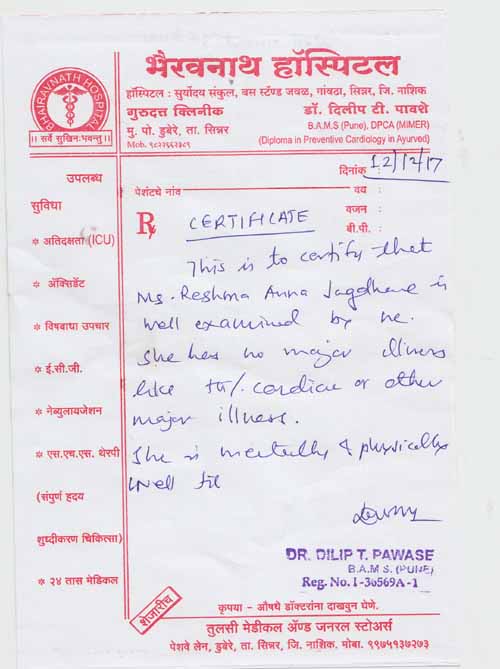 भैरवनाथ हॉस्पिटल
BHAIRAVNATH HOSPITAL
॥ सर्वे सुखिनः भवन्तु ॥
हॉस्पिटल : सुर्योदय संकुल, बस स्टॅण्ड जवळ, गांवठा, सिन्नर, जि. नाशिक
गुरुदत्त क्लिनीक
मु. पो. डुबेरे, ता. सिन्नर
Mob. ९८२२९६२३८९
डॉ. दिलीप टी. पावशे
B.A.M.S (Pune), DPCA (MIMER)
(Diploma in Preventive Cardiology in Ayurved)
दिनांक : 12/12/17
पेशंटचे नांव
वय :
वजन :
बी.पी. :
उपलब्ध
सुविधा
* अतिदक्षता (ICU)
* ॲक्सिडेंट
* विषबाधा उपचार
* ई.सी.जी.
* नेब्युलायजेशन
* एस.एच.एस. थेरपी
(संपुर्ण हृदय
शुध्दीकरण चिकित्सा)
* २४ तास मेडिकल
℞ CERTIFICATE
This is to certify that
Ms. Reshma Anna Jagdhane is
well examined by me.
She has no major illness
like cardiac or other
major illness.
She is mentally & physically
well fit
DR. DILIP T. PAWASE
B.A.M.S. (PUNE)
Reg. No. I-36569A-1
शेजारीच
कृपया - औषधे डॉक्टरांना दाखवुन घेणे.
तुलसी मेडीकल ॲण्ड जनरल स्टोअर्स
पेशवे लेन, डुबेरे, ता. सिन्नर, जि. नाशिक. मोबा. ९९७५१३७२७३